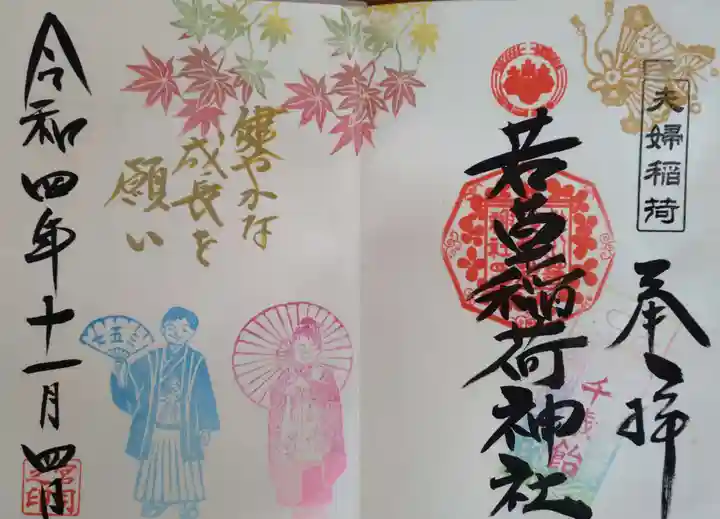 夫婦稲荷
奉拝
若草稲荷神社
千歳飴
健やかな
成長を
願い
七五三
令和四年十一月四日